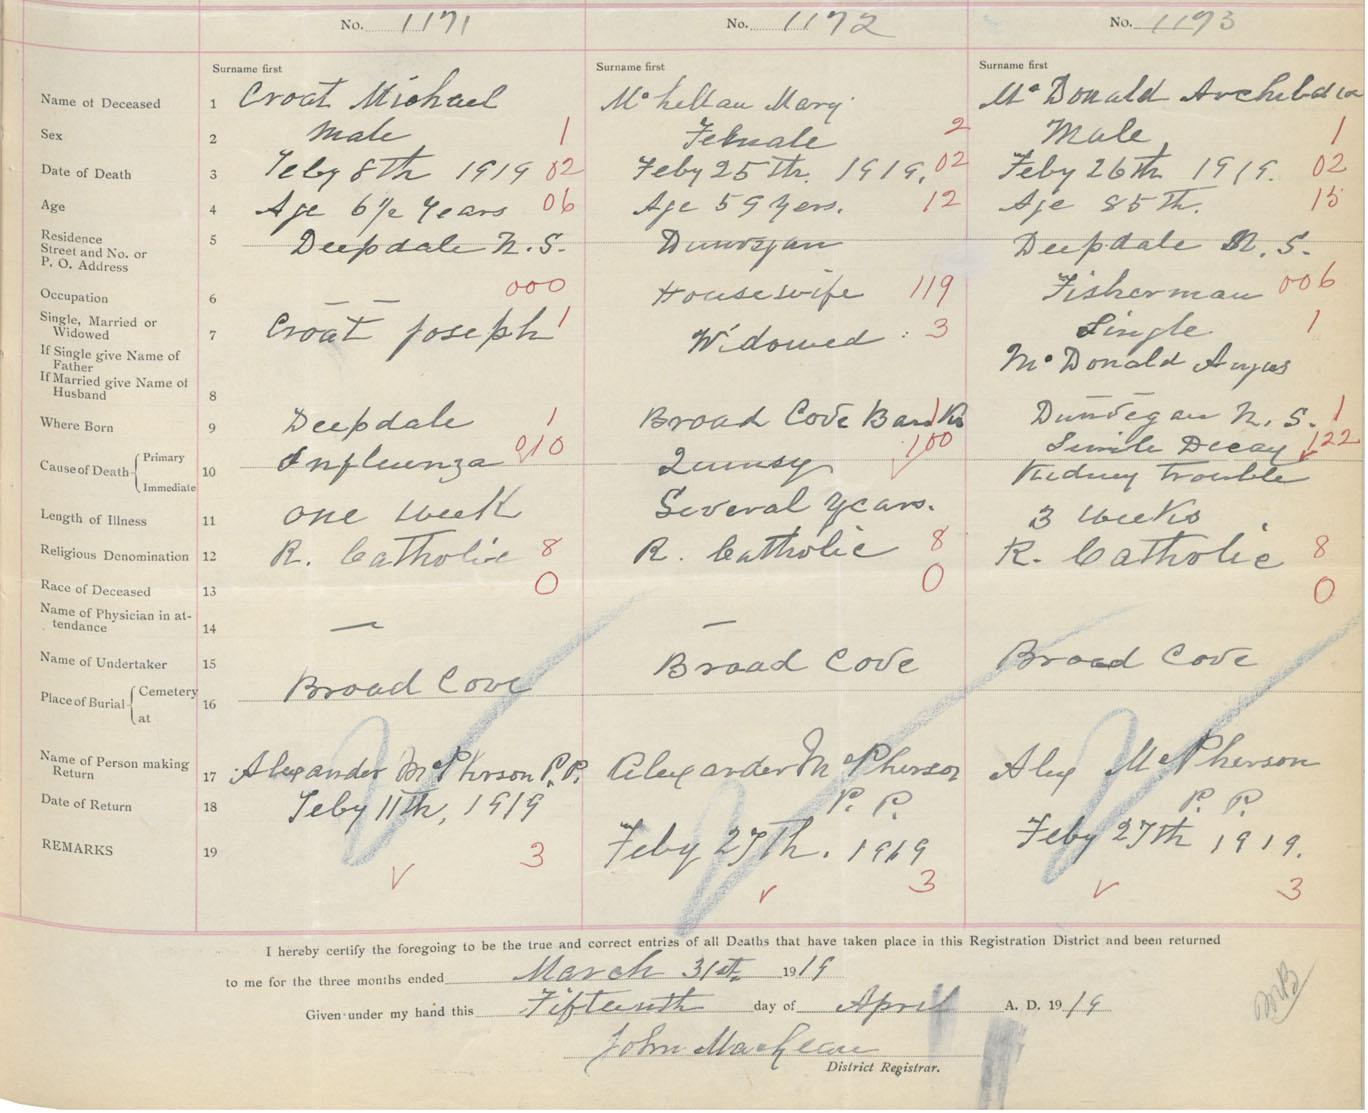 No. 1171 No. 1172 No. 1173
Surname first Surname first Surname first
Name of Deceased 1 Croat Michael McLellan Mary McDonald Archibald
Sex 2 Male 1 Female 2 Male 1
Date of Death 3 Feby 8th 1919 02 Feby 25th. 1919. 02 Feby 26th 1919. 02
Age 4 Age 6 1/2 Years 06 Age 59 Yers. 12 Age 85th. 15
Residence
Street and No. or
P. O. Address
5 Deepdale N. S. Dunvegan Deepdale N. S.
Occupation 6 — — 000 Housewife 119 Fisherman 006
Single, Married or
Widowed
7 Croat Joseph 1 Widowed 3 Single 1
If Single give Name of
Father
McDonald Angus
If Married give Name of
Husband
8
Where Born 9 Deepdale 1 Broad Cove Banks 1 Dunvegan N. S. 1
Cause of Death Primary
Immediate
10 Influenza 010 Quinsy 100 Senile Decay 122
Kidney Trouble
Length of Illness 11 one week Several years. 3 weeks
Religious Denomination 12 R. Catholic 8 R. Catholic 8 R. Catholic 8
Race of Deceased 13 0 0 0
Name of Physician in at-
tendance
14 — —
Name of Undertaker 15
Place of Burial Cemetery
at
16 Broad Cove Broad Cove Broad Cove
Name of Person making
Return
17 Alexander McPherson P.P. Alexander McPherson Alex McPherson
P. P. P. P.
Date of Return 18 Feby 11th, 1919 Feby 27th. 1919 Feby 27th 1919.
REMARKS 19 3 3 3
I hereby certify the foregoing to be the true and correct entries of all Deaths that have taken place in this Registration District and been returned
to me for the three months ended March 31st. 1919
Given under my hand this Fifteenth day of April A. D. 1919
John MacLean
District Registrar.